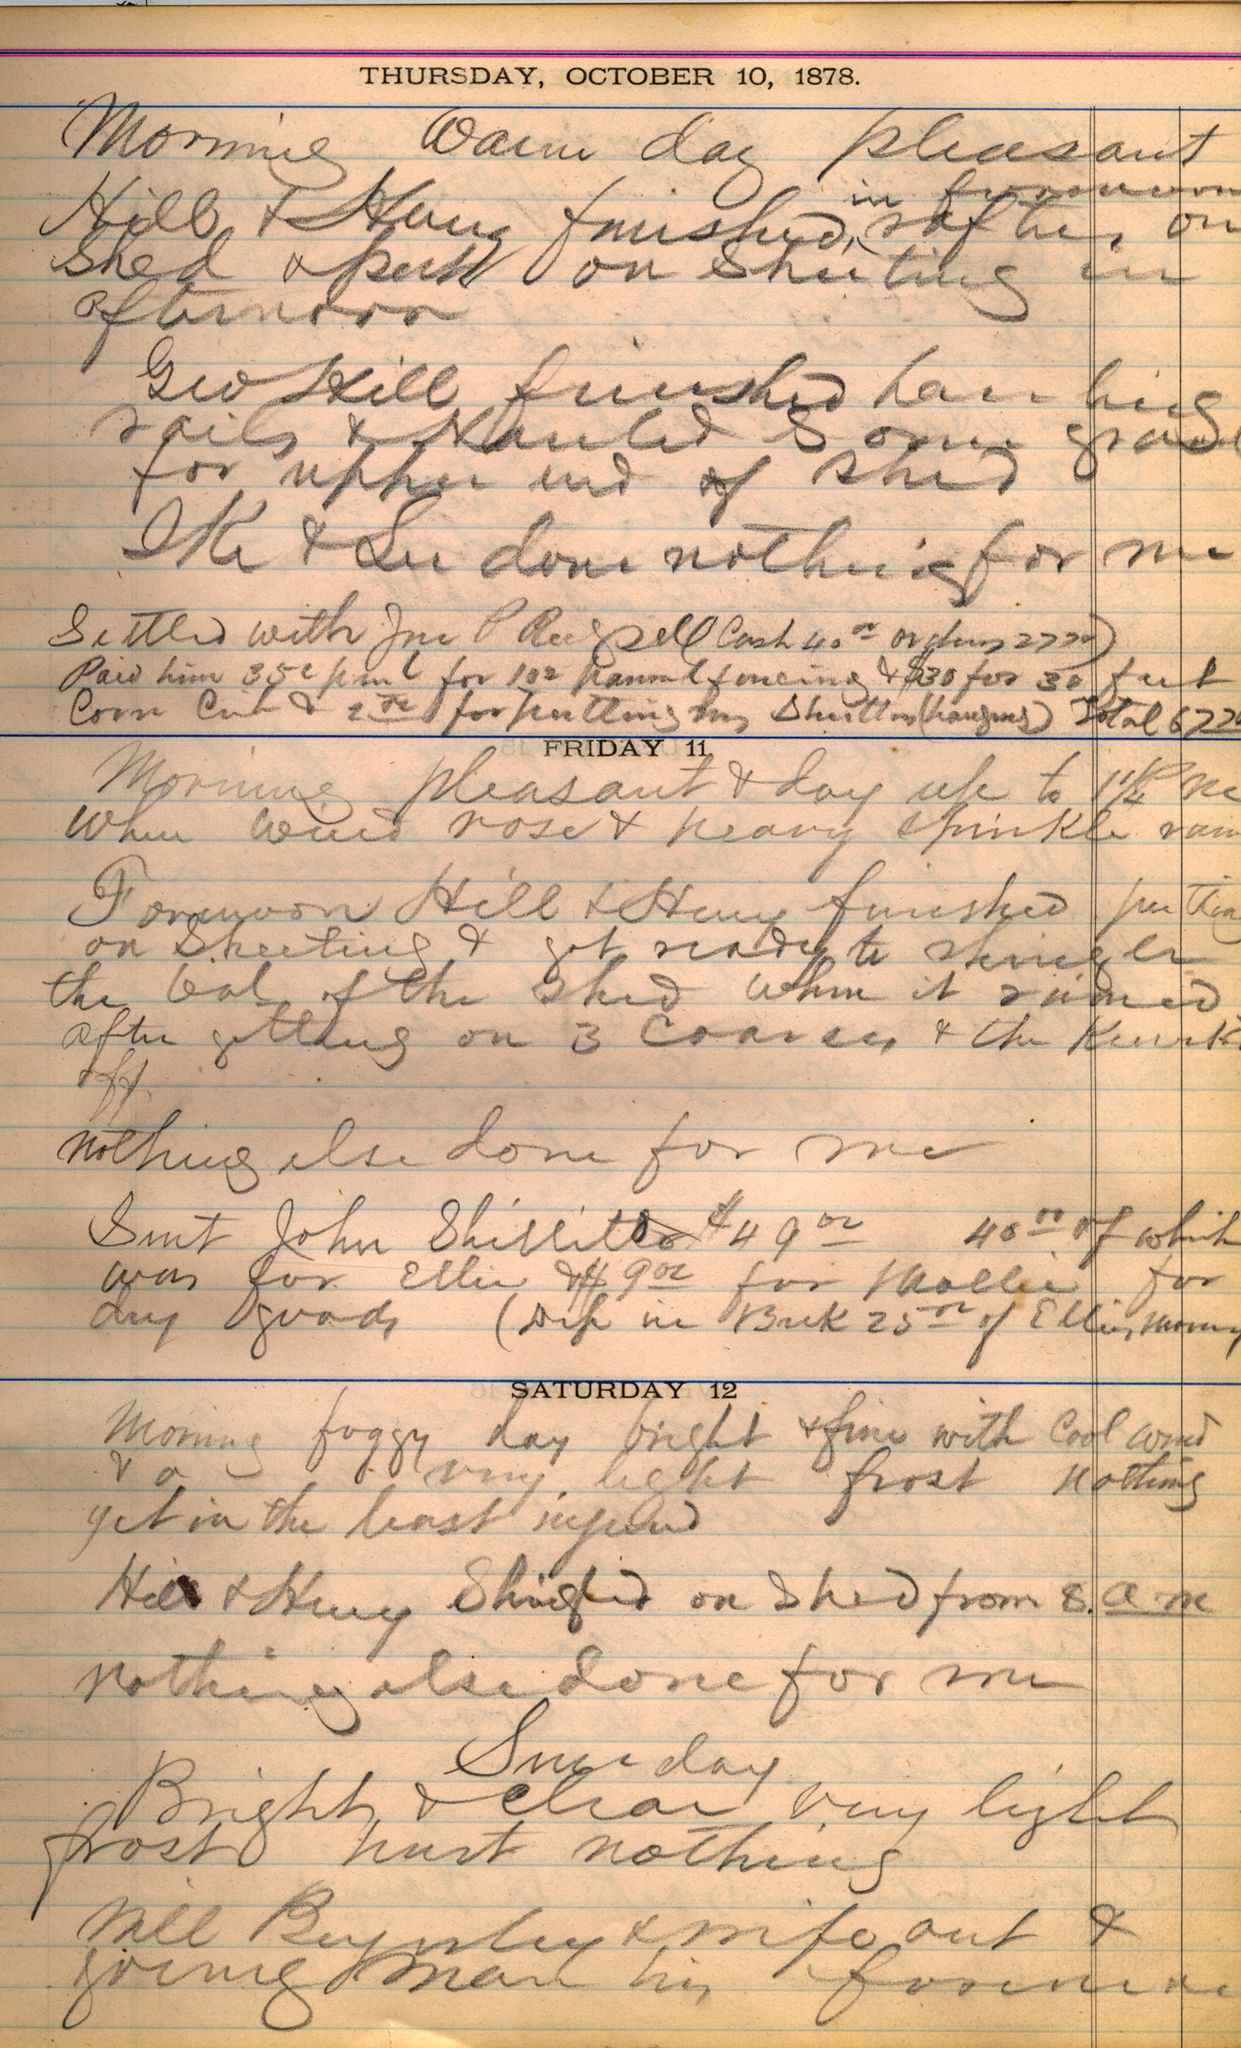 THURSDAY, OCTOBER 10, 1878.
Morning Warm day pleasant
in forenoon
Hill & Henry finished rafters on
Shed & put on Sheeting in
afternoon
Geo Hill finished hauling
rails & Hauled Some gravel
for upper end of shed
Ike & Lee done nothing for me
Settled with Jno P (Cash 40.00 orders 27.20)
Paid him 35c for 102 pannel fencing & $30 for 30 feet
Corn Crib & 2.00 for putting up Shutters (hanging) Total 67.20
FRIDAY 11
Morning pleasant & day up to 1 1/4 P m
When wind rose & heavy sprinkle rain
Forenoon Hill & Henry finished putting
on Sheeting & got ready to shingle
the bal of the Shed When it rained
after getting on 3 Coarses & the Knocked
off
nothing else done for me
Sent John Shillito $49.00 40.00 of which
was for Ellie & $9.00 for Mollie for
dry goods (Dep in Bank 25.00 of Ellies money
SATURDAY 12
Morning foggy day bright & fine with Cool wind
& a very light frost nothing
yet in the least injured
Hill & Henry Shingled on Shed from 8. a m
nothing else done for me
Sunday
Bright & Clear very light
frost hurt nothing
Will & wife out &
young man his